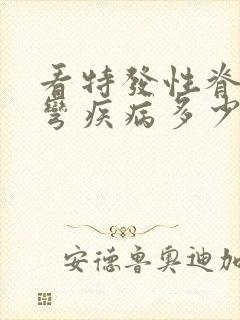 看特發性脊
彎疾病多少
安德魯奧迪加